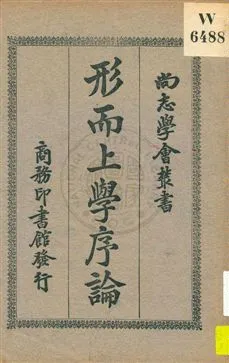 W
6488
尚志學會叢書
形而上學序論
商務印書館發行